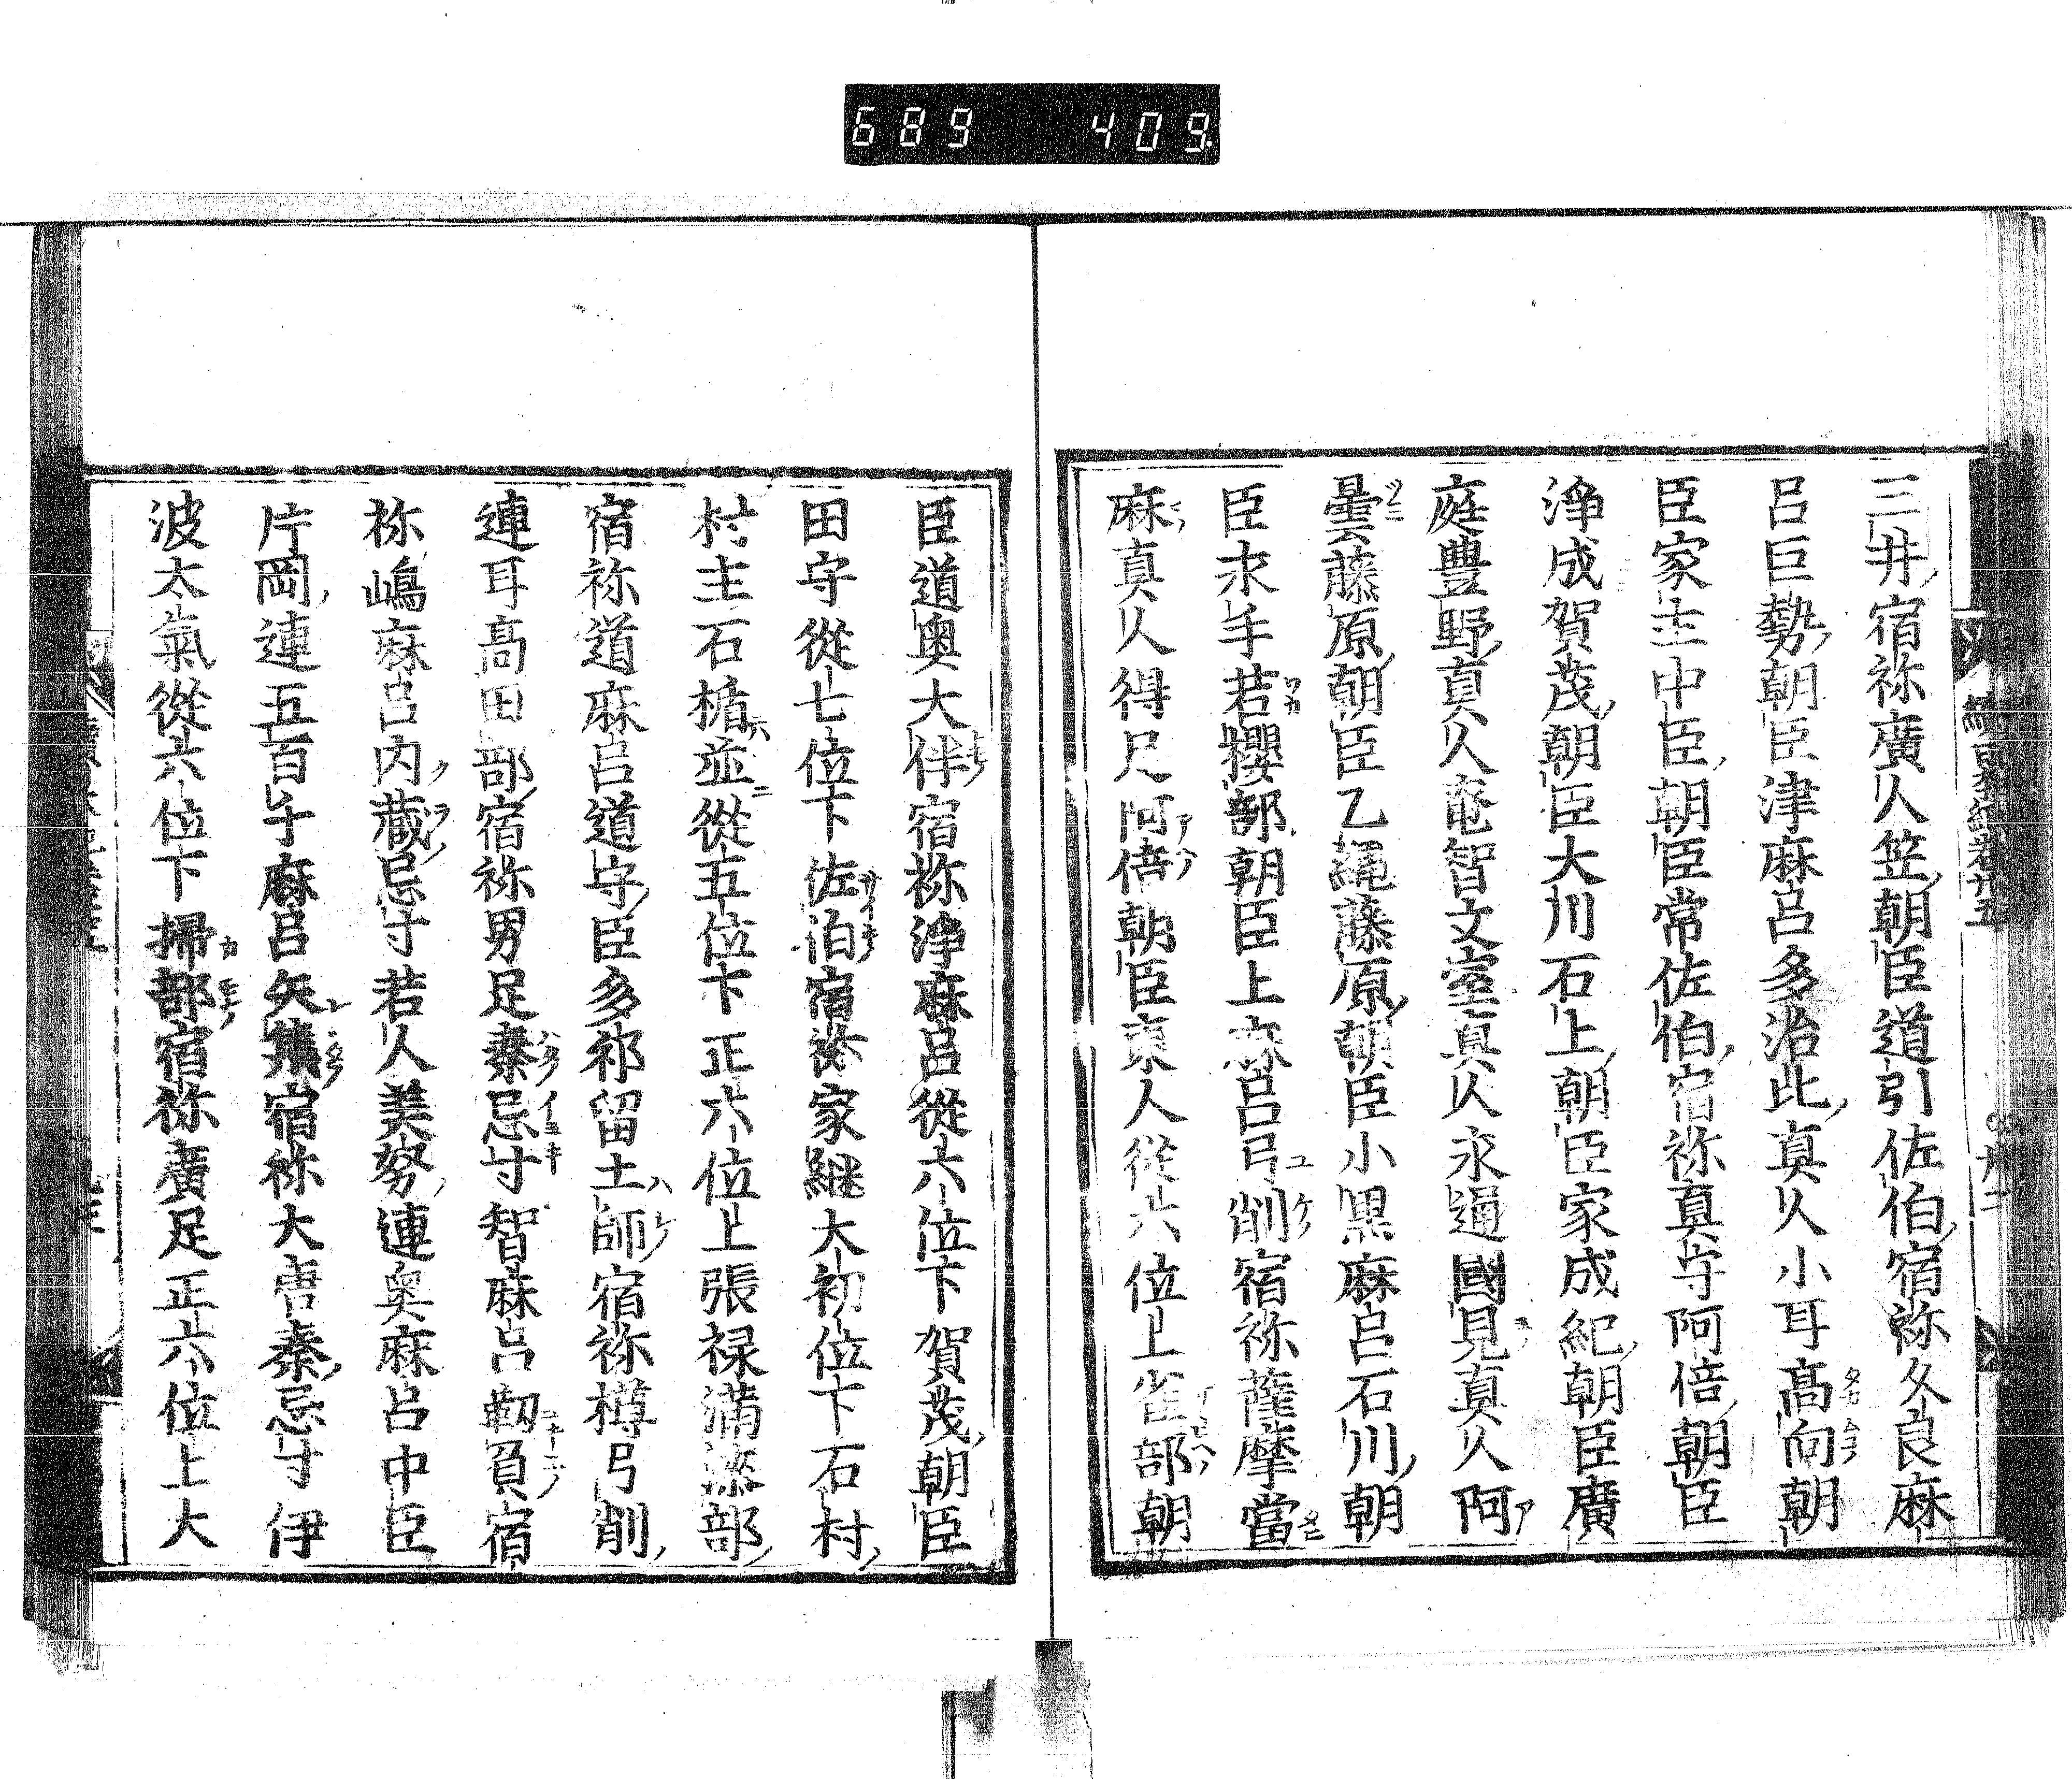 689 409
續日本紀卷廿五
卅二
三井宿祢廣人笠朝臣道引佐伯宿祢久良麻
呂巨勢朝臣津麻呂多治比真人小耳髙向朝
臣家主中臣朝臣常佐伯宿祢真守阿倍朝臣
浄成賀茂朝臣大川石上朝臣家成紀朝臣廣
庭豊野真人奄智文室真人水通國見真人阿
曇藤原朝臣乙縄藤原朝臣小黒麻呂石川朝
臣永手若櫻部朝臣上麻呂弓削宿祢薩摩當
麻真人得足阿倍朝臣東人従六位上雀部朝
臣道奥大伴宿祢浄麻呂從六位下賀茂朝臣
田守從七位下佐泊宿祢家継大初位下石村
村主石楯並從五位下正六位上張禄滿漆部
宿祢道麻呂道守臣多祁留土師宿祢樽弓削
連耳髙田部宿祢男足秦忌寸智麻呂靱負宿
祢嶋麻呂内蔵忌寸若人美努連奥麻呂中臣
片岡連五百千麻呂矢集宿祢大唐秦忌寸伊
波太氣從六位下掃部宿祢廣足正六位上大